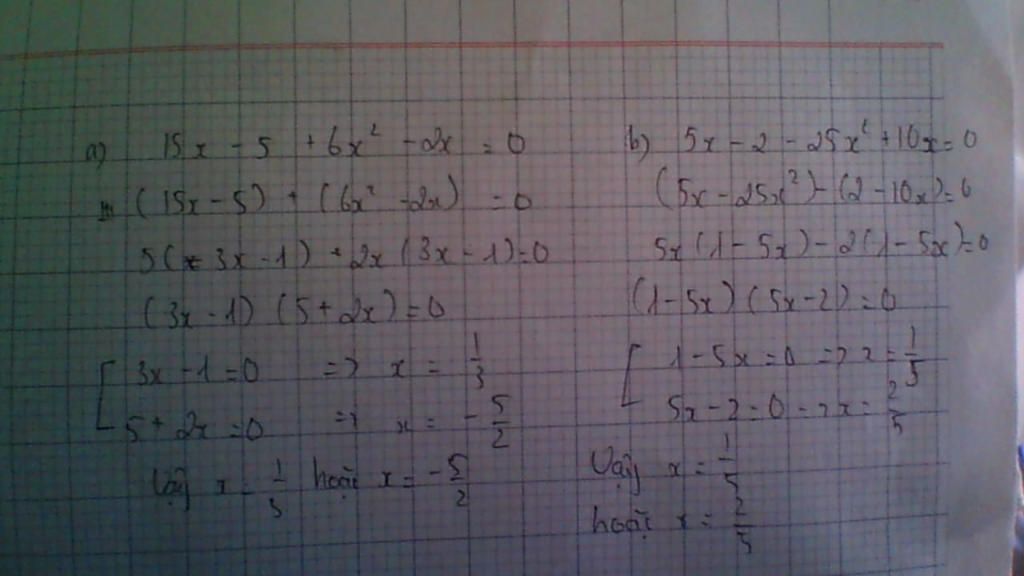 a) 15x - 5 + 6x² - 2x = 0
(15x - 5) + (6x² - 2x) = 0
5(3x - 1) + 2x (3x - 1) = 0
(3x - 1) (5 + 2x) = 0
[ 3x - 1 = 0 => x = 1/3
5 + 2x = 0 => x = - 5/2
Vậy x = 1/3 hoặc x = - 5/2
b) 5x - 2 - 25x² + 10x = 0
(5x - 25x²) - (2 - 10x) = 0
5x (1 - 5x) - 2(1 - 5x) = 0
(1 - 5x) (5x - 2) = 0
[ 1 - 5x = 0 => x = 1/5
5x - 2 = 0 => x = 2/5
Vậy x = 1/5
hoặc x = 2/5